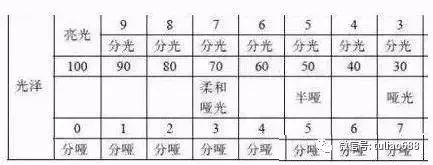 光泽 亮光 9 8 7 6 5 4 3
分光 分光 分光 分光 分光 分光 分光
100 90 80 70 60 50 40 30
柔和哑光 半哑 哑光
0 1 2 3 4 5 6 7
分哑 分哑 分哑 分哑 分哑 分哑 分哑 分哑
微信号: tuliao688